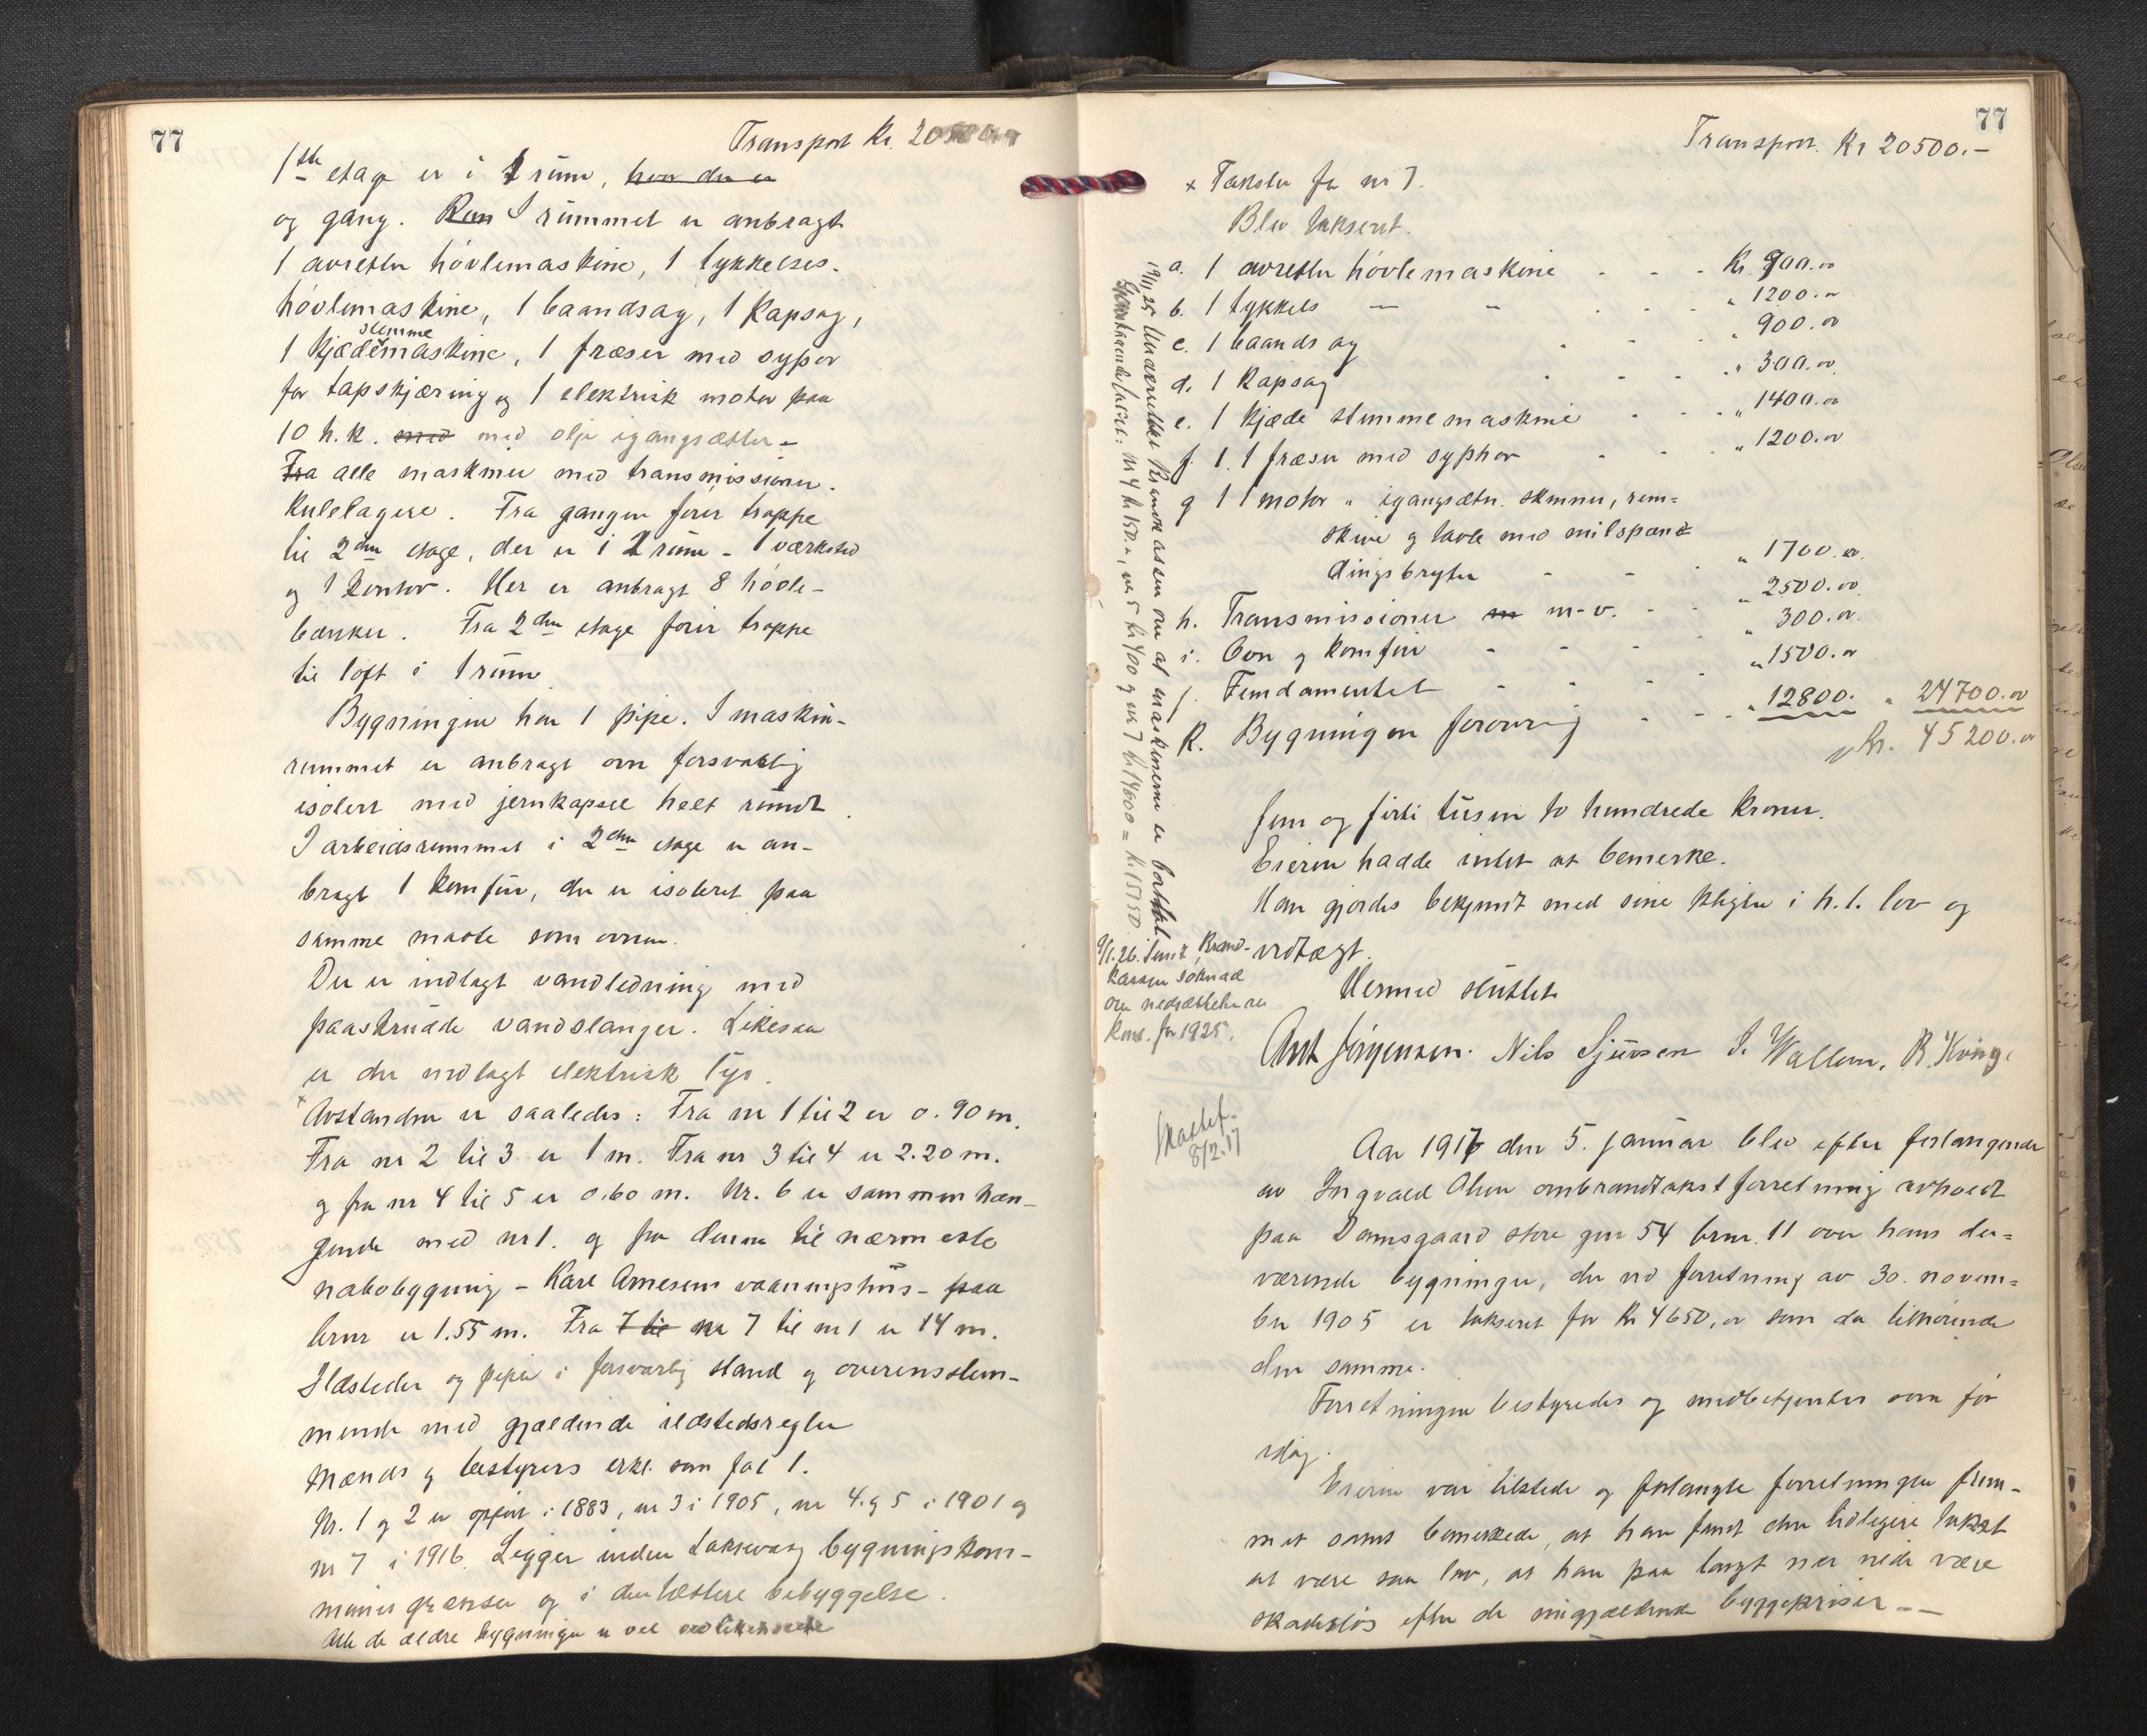 77
Transport Kr. 20500
1ste etage er i 1 rum, hvor der er
og gang. Rum I rummet er anbragt
1 avretter høvlemaskine, 1 tykkelses-
høvlemaskine, 1 baandsag, 1 kapsag,
stemme
1 kjædemaskine, 1 fræser med syper
for tapskjæring og 1 elektrisk motor paa
10 h.k. med med olje igangsætter -
Fra alle maskiner med transmissioner.
Kulelagere. Fra gangen fører trappe
til 2den etage, der er i 2 rum - 1 værksted
og 1 kontor. Her er anbragt 8 høvle-
bænker. Fra 2den etage fører trappe
til loft i 1 rum
Bygningen har 1 pipe. I maskin-
rummet er anbragt ovn forsvarlig
isolert med jernkapsel helt rundt.
I arbeidsrummet i 2den etage er an-
bragt 1 komfur, der er isoleret paa
samme maate som ovnen.
Der er indlagt vandledning med
paaskruade vandslanger. Likesaa
er der indlagt elektrisk lys.
x Avstanden er saaledes: Fra nr 1 til 2 er 0.90 m.
Fra nr 2 til 3 er 1 m. Fra nr 3 til 4 er 2.20 m.
og fra nr 4 til 5 er 0.60 m. Nr. 6 er sammenhæn-
gende med nr 1. og fra denne til nærmeste
nabobygning - Karl Arnesens vaaningshus - paa
brnr er 1.55 m. Fra 7 til nr 7 til nr 1 er 14 m.
Ildsteder og piper i forsvarlig stand og overensstem-
mende med gjældende ildstedsregler
Mænds og bestyrers erkl. som fol 1.
Nr. 1 og 2 er opført i 1883, nr 3 i 1905, nr 4 og 5 i 1901 og
nr 7 i 1916. Ligger inden Laksevaag bygningskom-
munes grænser og i den tættere bebyggelse.
Alle de ældre bygninger er vel vedlikeholdte
77
Transport. Kr 20500.-
x Takster for nr 7.
Blev takseret.
a. 1 avretter høvlemaskine - - - Kr. 900.00
b. 1 tykkels — " - - - " 1200.00
c. 1 baandsag - - - " 900.00
d. 1 kapsag - - - " 300.00
e. 1 kjæde stemmemaskine - - - " 1400.00
f. 1 1 fræser med syphor - - - " 1200.00
g 1 1 motor " igangsætn. skinner, rem=
skive og tavle med nulspænd
dingsbryter - - - " 1700.00
h. Transmissioner m m-v. - - " 2500.00
i. Ovn og komfur - - - " 300.00
j. Fundamentet - - - " 1500.00
k. Bygningen forøvrig - - - " 12800. " 24700.00
Kr. 45200.00
fem og førti tusen to hundrede kroner.
Eieren hadde intet at bemerke.
Han gjordes bekjendt med sine pligter i h.t. lov og
vedtægt.
Hermed sluttet
Ant Jørgensen. Nils Sjursen J. Wallem. R. Kvinge
19/11.25 Underrettet Brandkassen om at maskinerne er bortsolgt.
Gjenstaaende takst: nr 4 kr 150.-, nr 5 kr 400 og nr 7 kr 14600 = kr 15150.
9/1.26. Sendt Brand-
kassen søknad
om nedsættelse av
kont. for 1925.
8/2.17
Aar 1917 den 5. januar blev efter forlangende
av Ingvald Olsen ombrandtakstforretning avholdt
paa Damsgaard store gnr 54 brnr. 11 over hans der=
værende bygninger, der ved forretning av 30. novem=
ber 1905 er takseret for kr 4650,00 som da tilhørende
den samme.
Forretningen bestyredes og medbetjentes som før
idag.
Eieren var tilstede og forlangte forretningen frem-
met samt bemerkede, at han fandt den tidligere takst
at være saa lav, at han paa langt nær vilde være
skadesløs efter de nugjældende byggepriser - -